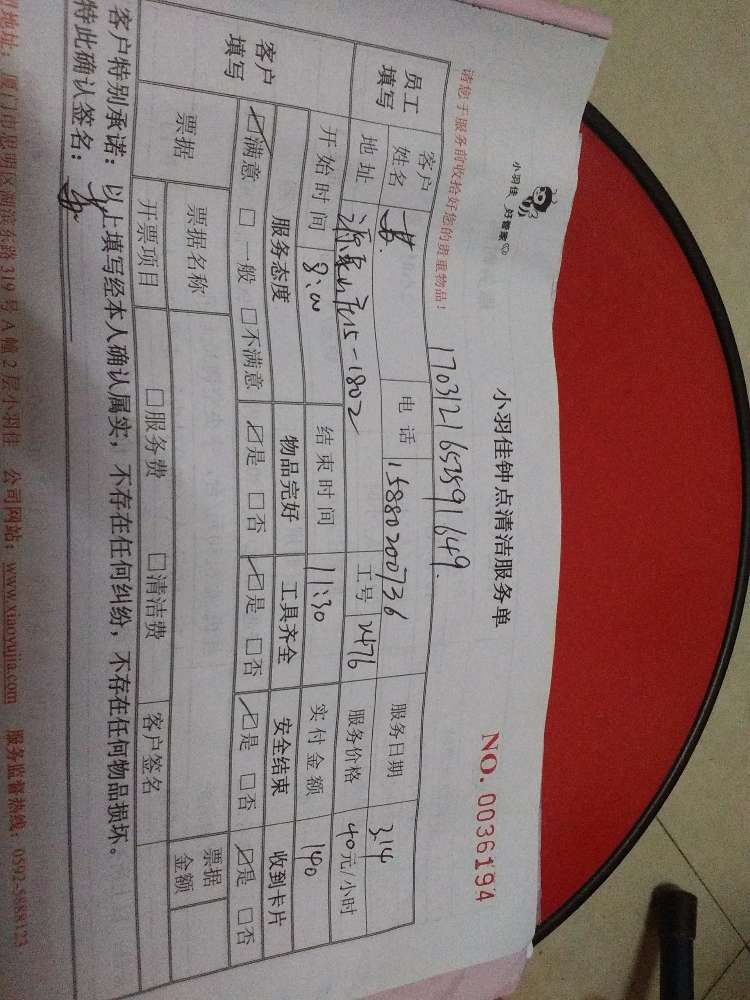 小羽佳 好管家
小羽佳钟点清洁服务单
NO. 0036194
请您于服务前收拾好您的贵重物品！
员工填写
客户姓名
电话 15880200736
服务日期 3.14
地址
5-1802
工号 2476
服务价格 40元/小时
开始时间 8:00
结束时间 11:30
实付金额 140
客户填写
服务态度 物品完好 工具齐全 安全结束 收到卡片
☑满意 □一般 □不满意 ☑是 □否 ☑是 □否 ☑是 □否 ☑是 □否
票据
票据名称
票据金额
开票项目 □服务费 □清洁费 客户签名
客户特别承诺：以上填写经本人确认属实，不存在任何纠纷，不存在任何物品损坏。
特此确认签名：
地址：厦门市思明区湖滨东路319号A幢2层小羽佳 公司网站：www.xiaoyujia.com 服务监督热线：0592-5888123